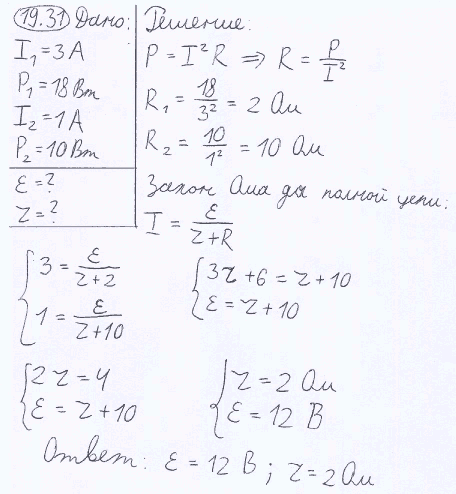 19.31 Дано: Решение:
I₁ = 3 А
P₁ = 18 Вт
I₂ = 1 А
P₂ = 10 Вт
ε = ?
r = ?
P = I² R ⇒ R = P/I²
R₁ = 18/3² = 2 Ом
R₂ = 10/1² = 10 Ом
Закон Ома для полной цепи:
I = ε/(r + R)
{ 3 = ε/(r + 2)
1 = ε/(r + 10)
{ 3r + 6 = r + 10
ε = r + 10
{ 2r = 4
ε = r + 10
{ r = 2 Ом
ε = 12 В
Ответ: ε = 12 В; r = 2 Ом